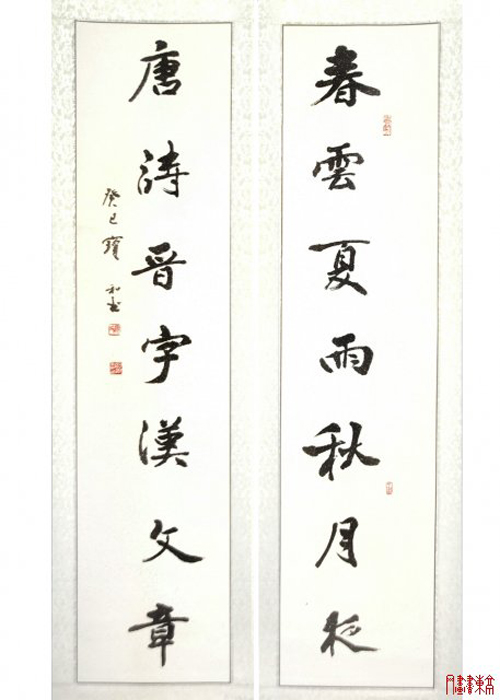 春雲夏雨秋月夜
唐詩晋字漢文章
癸巳寶和書